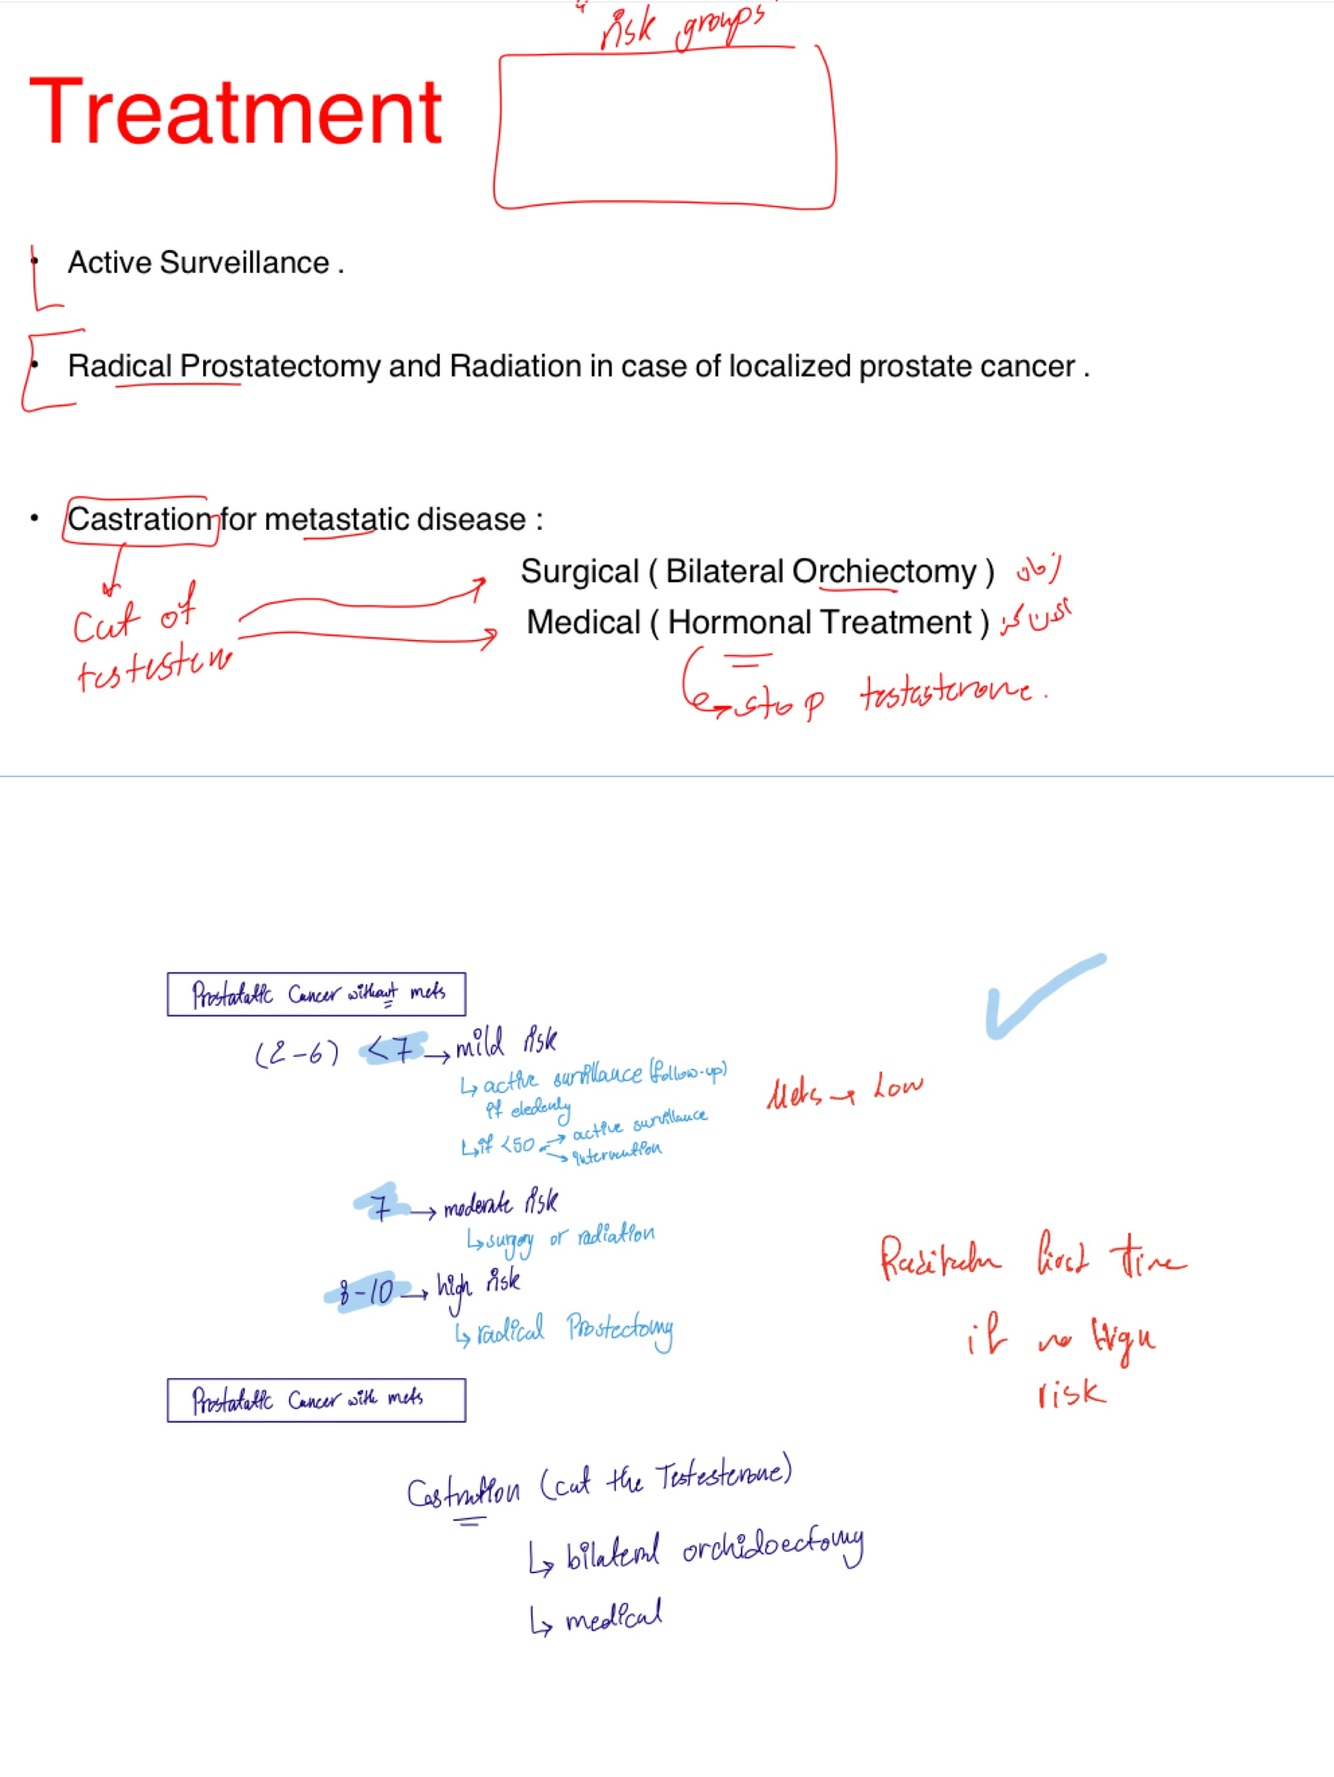 risk groups
Treatment
• Active Surveillance .
• Radical Prostatectomy and Radiation in case of localized prostate cancer .
• Castration for metastatic disease :
Surgical ( Bilateral Orchiectomy ) زمان
Medical ( Hormonal Treatment )
Cut of
testesten
stop testesterone.
Prostatatic Cancer without mets
(2-6) <7 → mild risk
↳ active survillance (follow-up)
if elederly
↳ if <50 → active survillance
→ intervention
Mets → Low
7 → moderate risk
↳ surgery or radiation
8-10 → high risk
↳ radical Prostectomy
first time
if no High
risk
Prostatatic Cancer with mets
Castration (cut the Testesterone)
↳ bilateral orchidoectomy
↳ medical